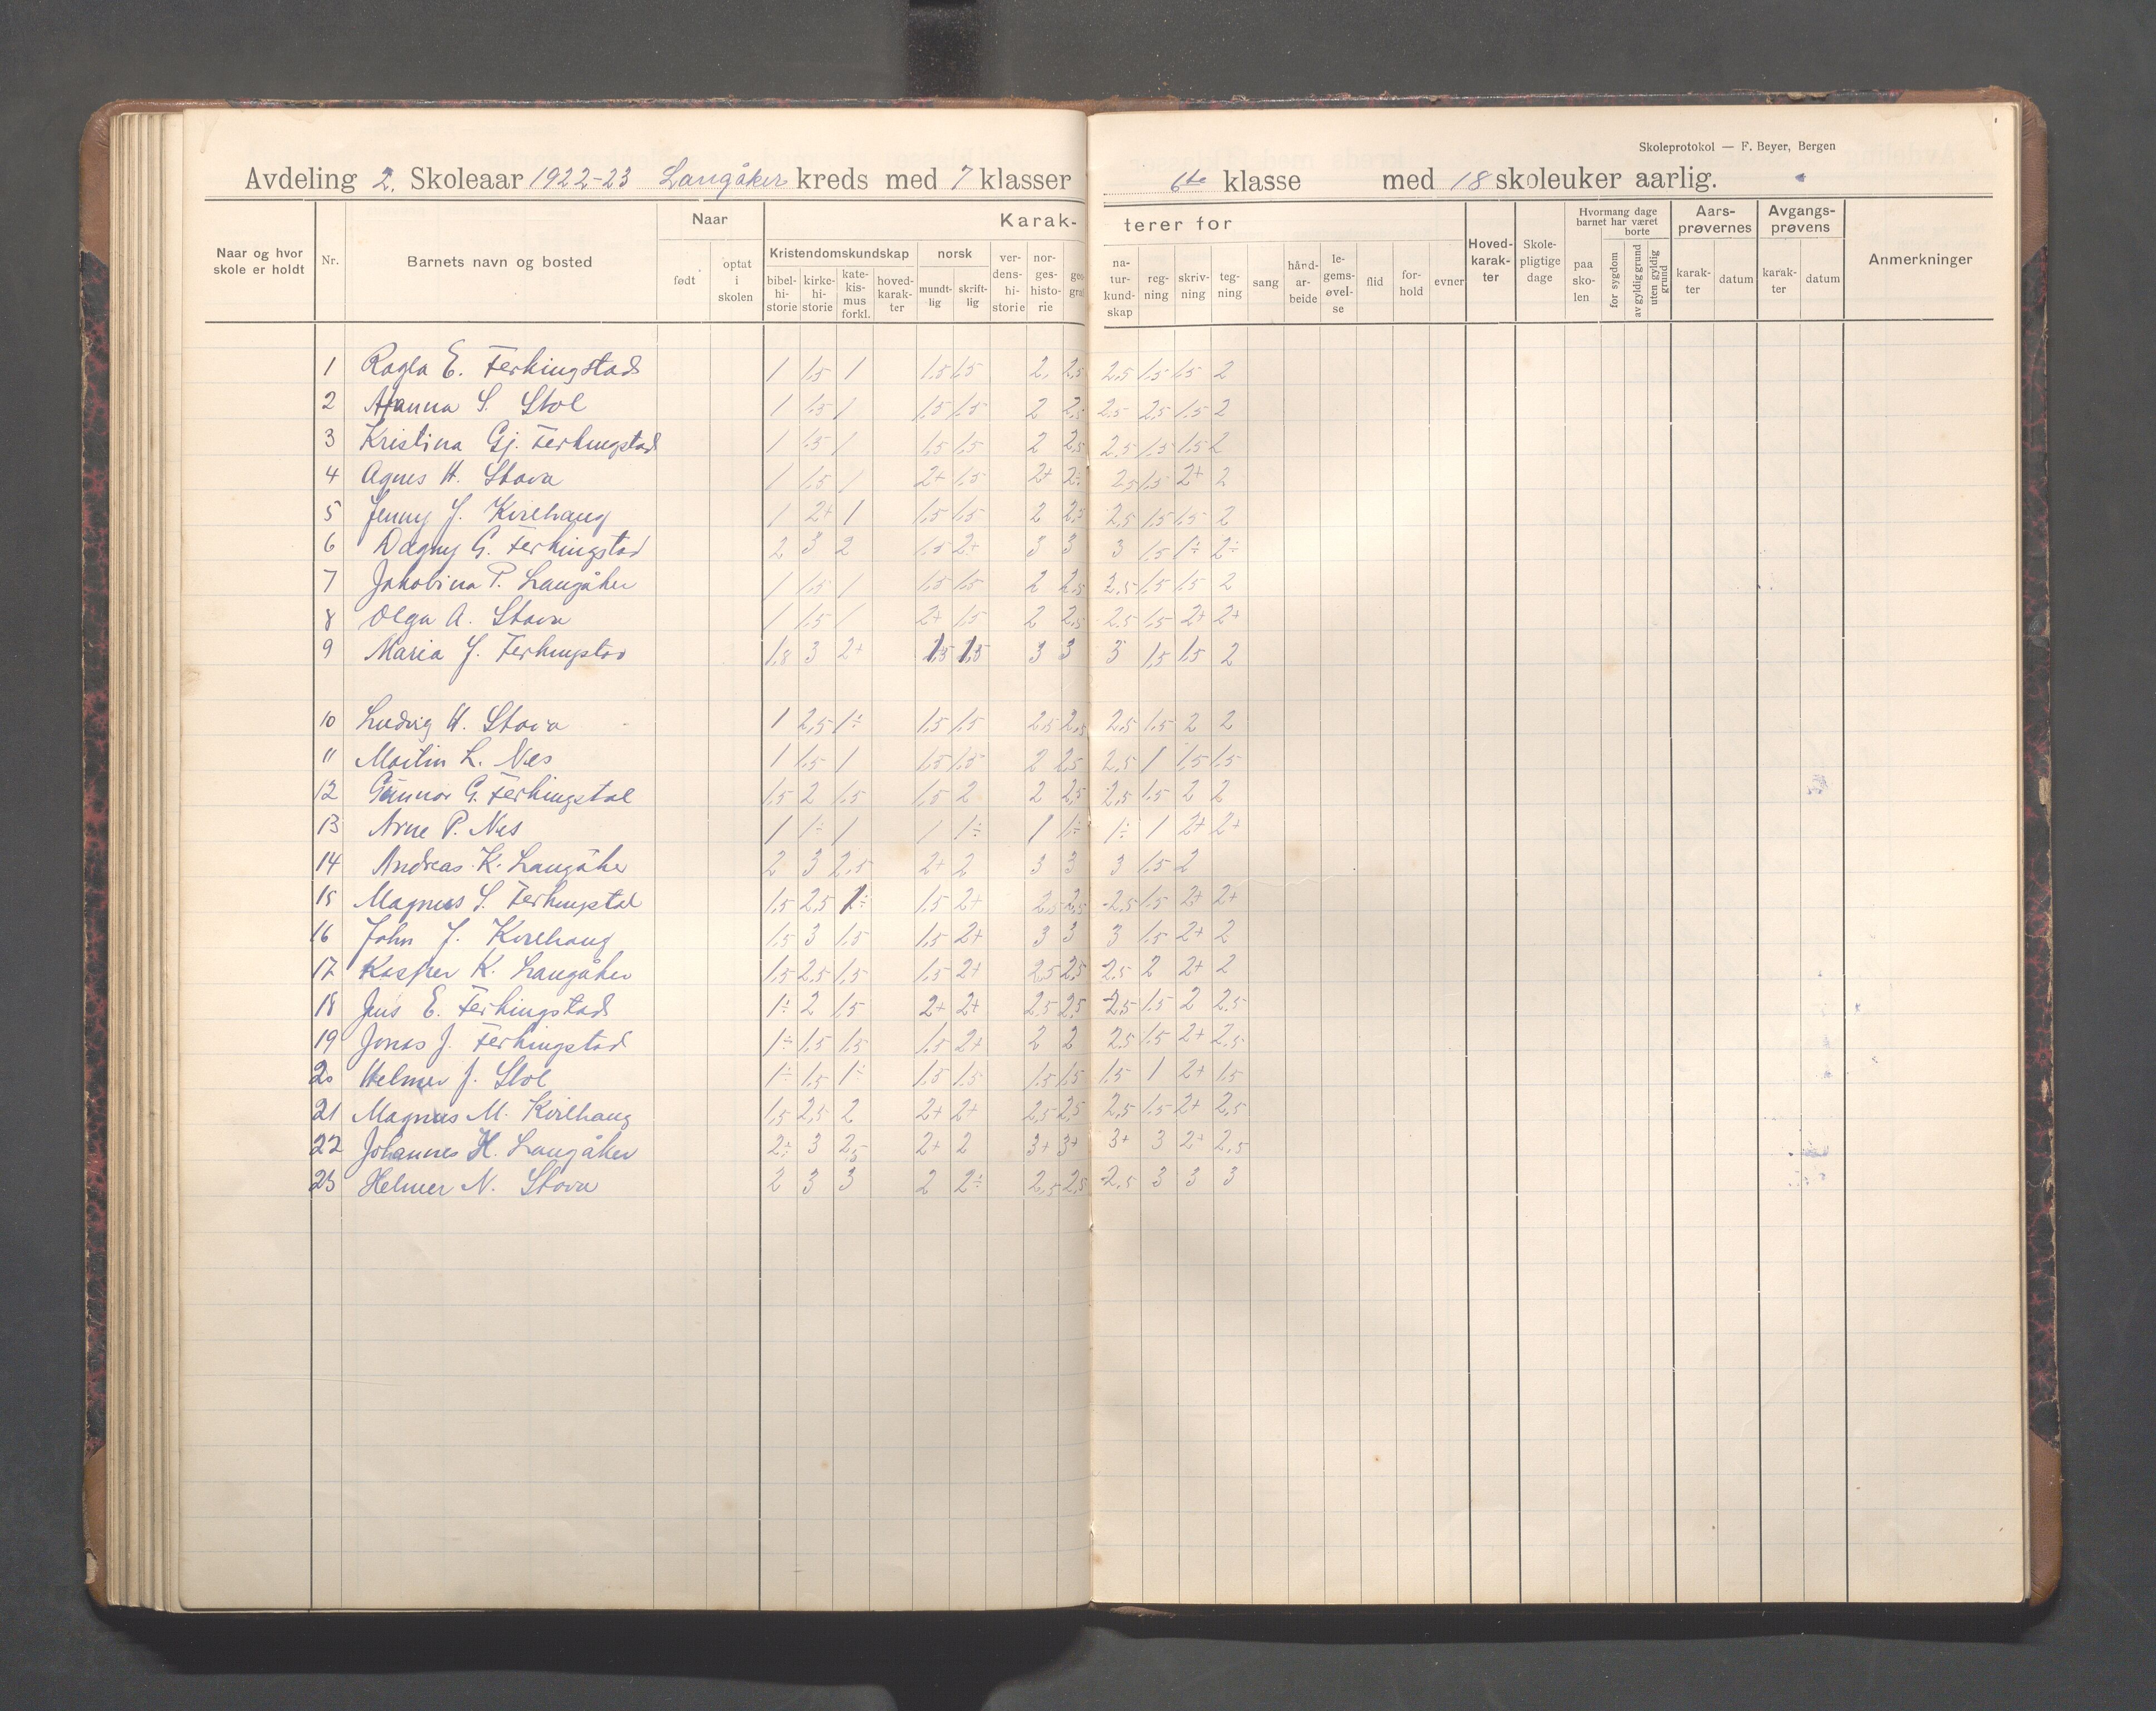 Skoleprotokol — F. Beyer, Bergen
Avdeling 2. Skoleaar 1922-23 Langåker kreds med 7 klasser 6te klasse med 18 skoleuker aarlig.
Naar og hvor skole er holdt Nr. Barnets navn og bosted Naar født optat i skolen Karakterer for
Kristendomskundskap bibelhistorie kirkehistorie katekismus forkl. hovedkarakter norsk mundtlig skriftlig verdenshistorie norgeshistorie
naturkundskap regning skrivning tegning sang håndarbeide legemsøvelse flid forhold evner Hovedkarakter Skolepligtige dage
Hvormang dage barnet har været borte paa skolen for sygdom av gyldig grund uten gyldig grund Aarsprøvernes karakter datum Avgangsprøvens karakter datum Anmerkninger
1 Ragla E. Ferkingstad 1 1,5 1 1,5 1,5 2, 2,5 2,5 1,5 1,5 2
2 Hanna S. Stol 1 1,5 1 1,5 1,5 2 2,5 2,5 2,5 1,5 2
3 Kristina Gj. Ferkingstad 1 1,5 1 1,5 1,5 2 2,5 2,5 1,5 1,5 2
4 Agnes H. Stava 1 1,5 1 2+ 1,5 2+ 2÷ 2,5 1,5 2+ 2
5 Jenny J. Kvilhaug 1 2+ 1 1,5 1,5 2 2,5 2,5 1,5 1,5 2
6 Dagny G. Ferkingstad 2 3 2 1,5 2+ 3 3 3 1,5 1÷ 2÷
7 Jakobina P. Langåker 1 1,5 1 1,5 1,5 2 2,5 2,5 1,5 1,5 2
8 Olga A. Stava 1 1,5 1 2+ 1,5 2 2,5 2,5 1,5 2+ 2+
9 Maria J. Ferkingstad 1,8 3 2+ 1,5 1,5 3 3 3 1,5 1,5 2
10 Ludvig H. Stava 1 2,5 1÷ 1,5 1,5 2,5 2,5 2,5 1,5 2 2
11 Martin L. Nes 1 1,5 1 1,5 1,5 2 2,5 2,5 1 1,5 1,5
12 Gunnar G. Ferkingstad 1,5 2 1,5 1,5 2 2 2,5 2,5 1,5 2 2
13 Arne P. Nes 1 1÷ 1 1 1÷ 1 1÷ 1÷ 1 2+ 2+
14 Andreas K. Langåker 2 3 2,5 2+ 2 3 3 3 1,5 2
15 Magnus S. Ferkingstad 1,5 2,5 1÷ 1,5 2+ 2,5 2,5 2,5 1,5 2+ 2+
16 John J. Kvilhaug 1,5 3 1,5 1,5 2+ 3 3 3 1,5 2+ 2
17 Kasper K. Langåker 1,5 2,5 1,5 1,5 2+ 2,5 2,5 2,5 2 2+ 2
18 Jens E. Ferkingstad 1÷ 2 1,5 2+ 2+ 2,5 2,5 2,5 1,5 2 2,5
19 Jonas J. Ferkingstad 1÷ 1,5 1,5 1,5 2+ 2 2 2,5 1,5 2+ 2,5
20 Helmer J. Stol 1÷ 1,5 1÷ 1,5 1,5 1,5 1,5 1,5 1 2+ 1,5
21 Magnus M. Kvilhaug 1,5 2,5 2 2+ 2+ 2,5 2,5 2,5 1,5 2+ 2,5
22 Johannes H. Langåker 2÷ 3 2,5 2+ 2 3+ 3+ 3+ 3 2+ 2,5
23 Helmer N. Stava 2 3 3 2 2÷ 2,5 2,5 2,5 3 3 3